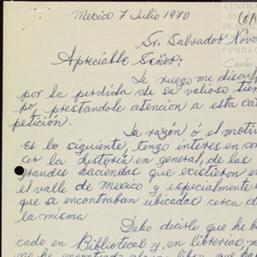 Mexico 7 Julio 1970
Sr. Salvador Novo
Apreciable Señor:
Le ruego me discul
por la perdida de su valioso tiem
po, prestandole atención a esta ca
petición.
La razón ó el motivo
es lo siguiente, tengo interes en cono
cer la historia en general, de las
grandes haciendas que existieron en
el valle de Mexico y especialmente
que se encontraban ubicadas cerca d
la misma
Debo decirle que he b
cado en Bibliotecas y, en librerias, n
me he encontrado algun libro que ha